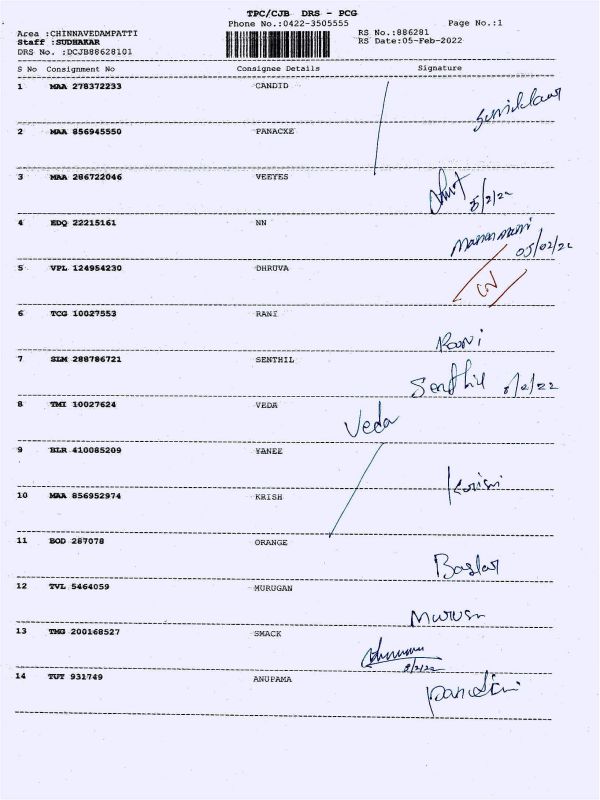 TPC/CJB DRS - PCG
Phone No.:0422-3505555 Page No.:1
Area :CHINNAVEDAMPATTI RS No.:886281
Staff :SUDHAKAR RS Date:05-Feb-2022
DRS No. :DCJB88628101
S No Consignment No Consignee Details Signature
1 MAA 278372233 CANDID
2 MAA 856945550 PANACXE
3 MAA 286722046 VEEYES
4 EDQ 22215161 NN
05/02/22
5 VPL 124954230 DHRUVA
6 TCG 10027553 RANI
Rani
7 SLM 288786721 SENTHIL
Senthil 5/2/22
8 TMI 10027624 VEDA
Veda
9 BLR 410085209 YANEE
10 MAA 856952974 KRISH
11 BOD 287078 ORANGE
12 TVL 5464059 MURUGAN
13 TMG 200168527 SMACK
14 TUT 931749 ANUPAMA